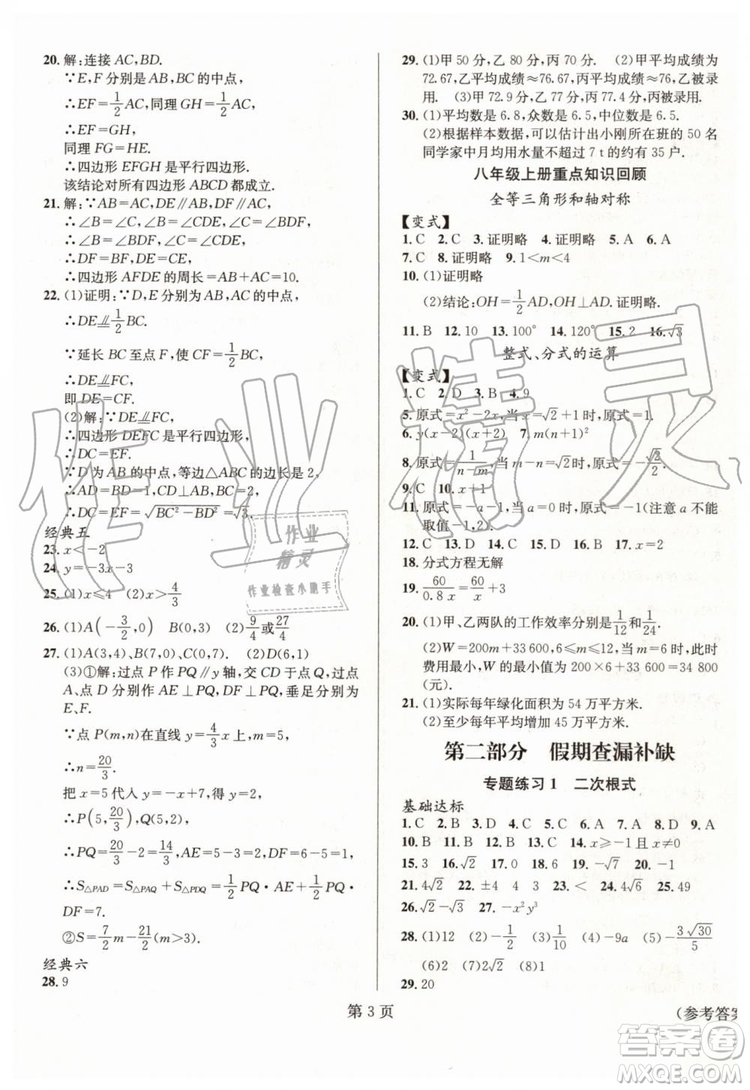 20. 解:连接 AC,BD.
∵E,F 分别是 AB,BC 的中点,
∴EF=1/2AC,同理 GH=1/2AC,
∴EF=GH,
同理 FG=HE.
∴四边形 EFGH 是平行四边形.
该结论对所有四边形 ABCD 都成立.
21. 解:∵AB=AC=5,DE∥AB,DF∥AC,
∴∠B=∠C,∠B=∠EDC,∠C=∠BDF,
∴∠B=∠BDF,∠C=∠EDC,
∴四边形 AFDE 的周长=AB+AC=10.
22. (1)证明:∵D,E 分别为 AB,AC 的中点,
∴DE⫽1/2BC.
∵延长 BC 至点 F,使 CF=1/2BC,
∴DE⫽FC,
即 DE=CF.
(2)解:∵DE⫽FC,
∴四边形 DEFC 是平行四边形,
∴DC=EF.
∵D 为 AB 的中点,等边△ABC 的边长是 2,
∴AD=BD=1,CD⊥AB,BC=2,
∴DC=EF=√(BC²-BD²)=√3.
经典五
23. x<-2
24. y=-x-3
25. (1)x≤4 (2)-2≤x≤4
26. (1)A(-3/2,0) B(0,3) (2)9/4或27/4
27. (1)A(3,4),B(7,0) (2)D(6,1)
(3)①解:过点 P 作 PQ∥y 轴,交 CD 于点 Q,过点
A、点 D 分别作 AE⊥PQ,DF⊥PQ,垂足分别为
E,F.
∵点 P(m,n)在直线 y=4/3x 上,且 m=5,
∴n=20/3.
把 x=5 代入 y=-x+7,得 y=2,
∴P(5,20/3),Q(5,2),
∴PQ=20/3-2=14/3,AE=5-3=2,DF=6-5=1,
∴S△PAD=S△PAQ+S△PDQ=1/2PQ·AE+1/2PQ·
DF=7.
②S=7/2m-21/2(m>3).
经典六
28. 9
29. (1)甲 50 分,乙 80 分,丙 70 分. (2)甲平均成绩≈
72.67,乙平均成绩≈76.67,丙平均成绩≈76,乙被录
用. (3)甲72.9分,乙77分,丙77.4分,丙被录用.
30. (1)平均数是 6.8,众数是 6.5,中位数是 6.5.
(2)根据样本数据,可以估计出小刚所在班的 50 名
同学家中月均用水量不超过 7 t 的约有 35 户.
八年级上册重点知识回顾
全等三角形和轴对称
【变式】
1. C 2. D 3. 证明略 4. 证明略 5. A 6. A
7. C 8. 证明略 9. 1<m<4
10. (1)证明略
(2)结论:OH=1/2AD,OH⊥AD. 证明略
11. B 12. 10 13. 100° 14. 120° 15. 2 16. √3
整式、分式的运算
【变式】
1. C 2. A 3. D 4. 9
5. 原式=x²-2x,当 x=√2+1时,原式=1.
6. y(x+2)(x-2) 7. m(n+1)²
8. 原式=1/(n-m),当m-n=√2时,原式=-√2/2.
9. C 10. x≠1
11. 原式=-a-1,当 a=0 时,原式=-1(注意 a 不能
取值-1,1,2).
12. C 13. A 14. D 15. B 16. x=3 17. x=0
18. 分式方程无解
19. 60/0.8x=60/x+3
20. (1)甲、乙两队的工作效率分别是1/12和1/24.
(2)W=200m+33 600,6≤m≤12. 当 m=6 时,此时
费用最小,W 的最小值为 200×6+33 600=34 800
(元).
21. (1)实际每年绿化面积为 54 万平方米.
(2)至少每年平均增加 45 万平方米.
第二部分 假期查漏补缺
专题练习 1 二次根式
基础达标
1. C 2. D 3. C 4. A 5. C 6. C 7. D 8. A 9. C
10. B 11. D 12. A 13. C 14. B
15. 3 16. √2 17. 0 18. 3√5 19. √7 20. -1
21. 49 22. ±4 3 23. 1/4 24. 1 25. √2/2
26. -√2 27. -x²y³
28. (1)12 (2)-1/2 (3)-9/2 (4)-9a (5)-3√30/5
(6)2 (7)2
29. 20
第 3 页
(参考答案
作业精灵
作业
精灵
作业检查小帮手
答案圈
MXQE.COM